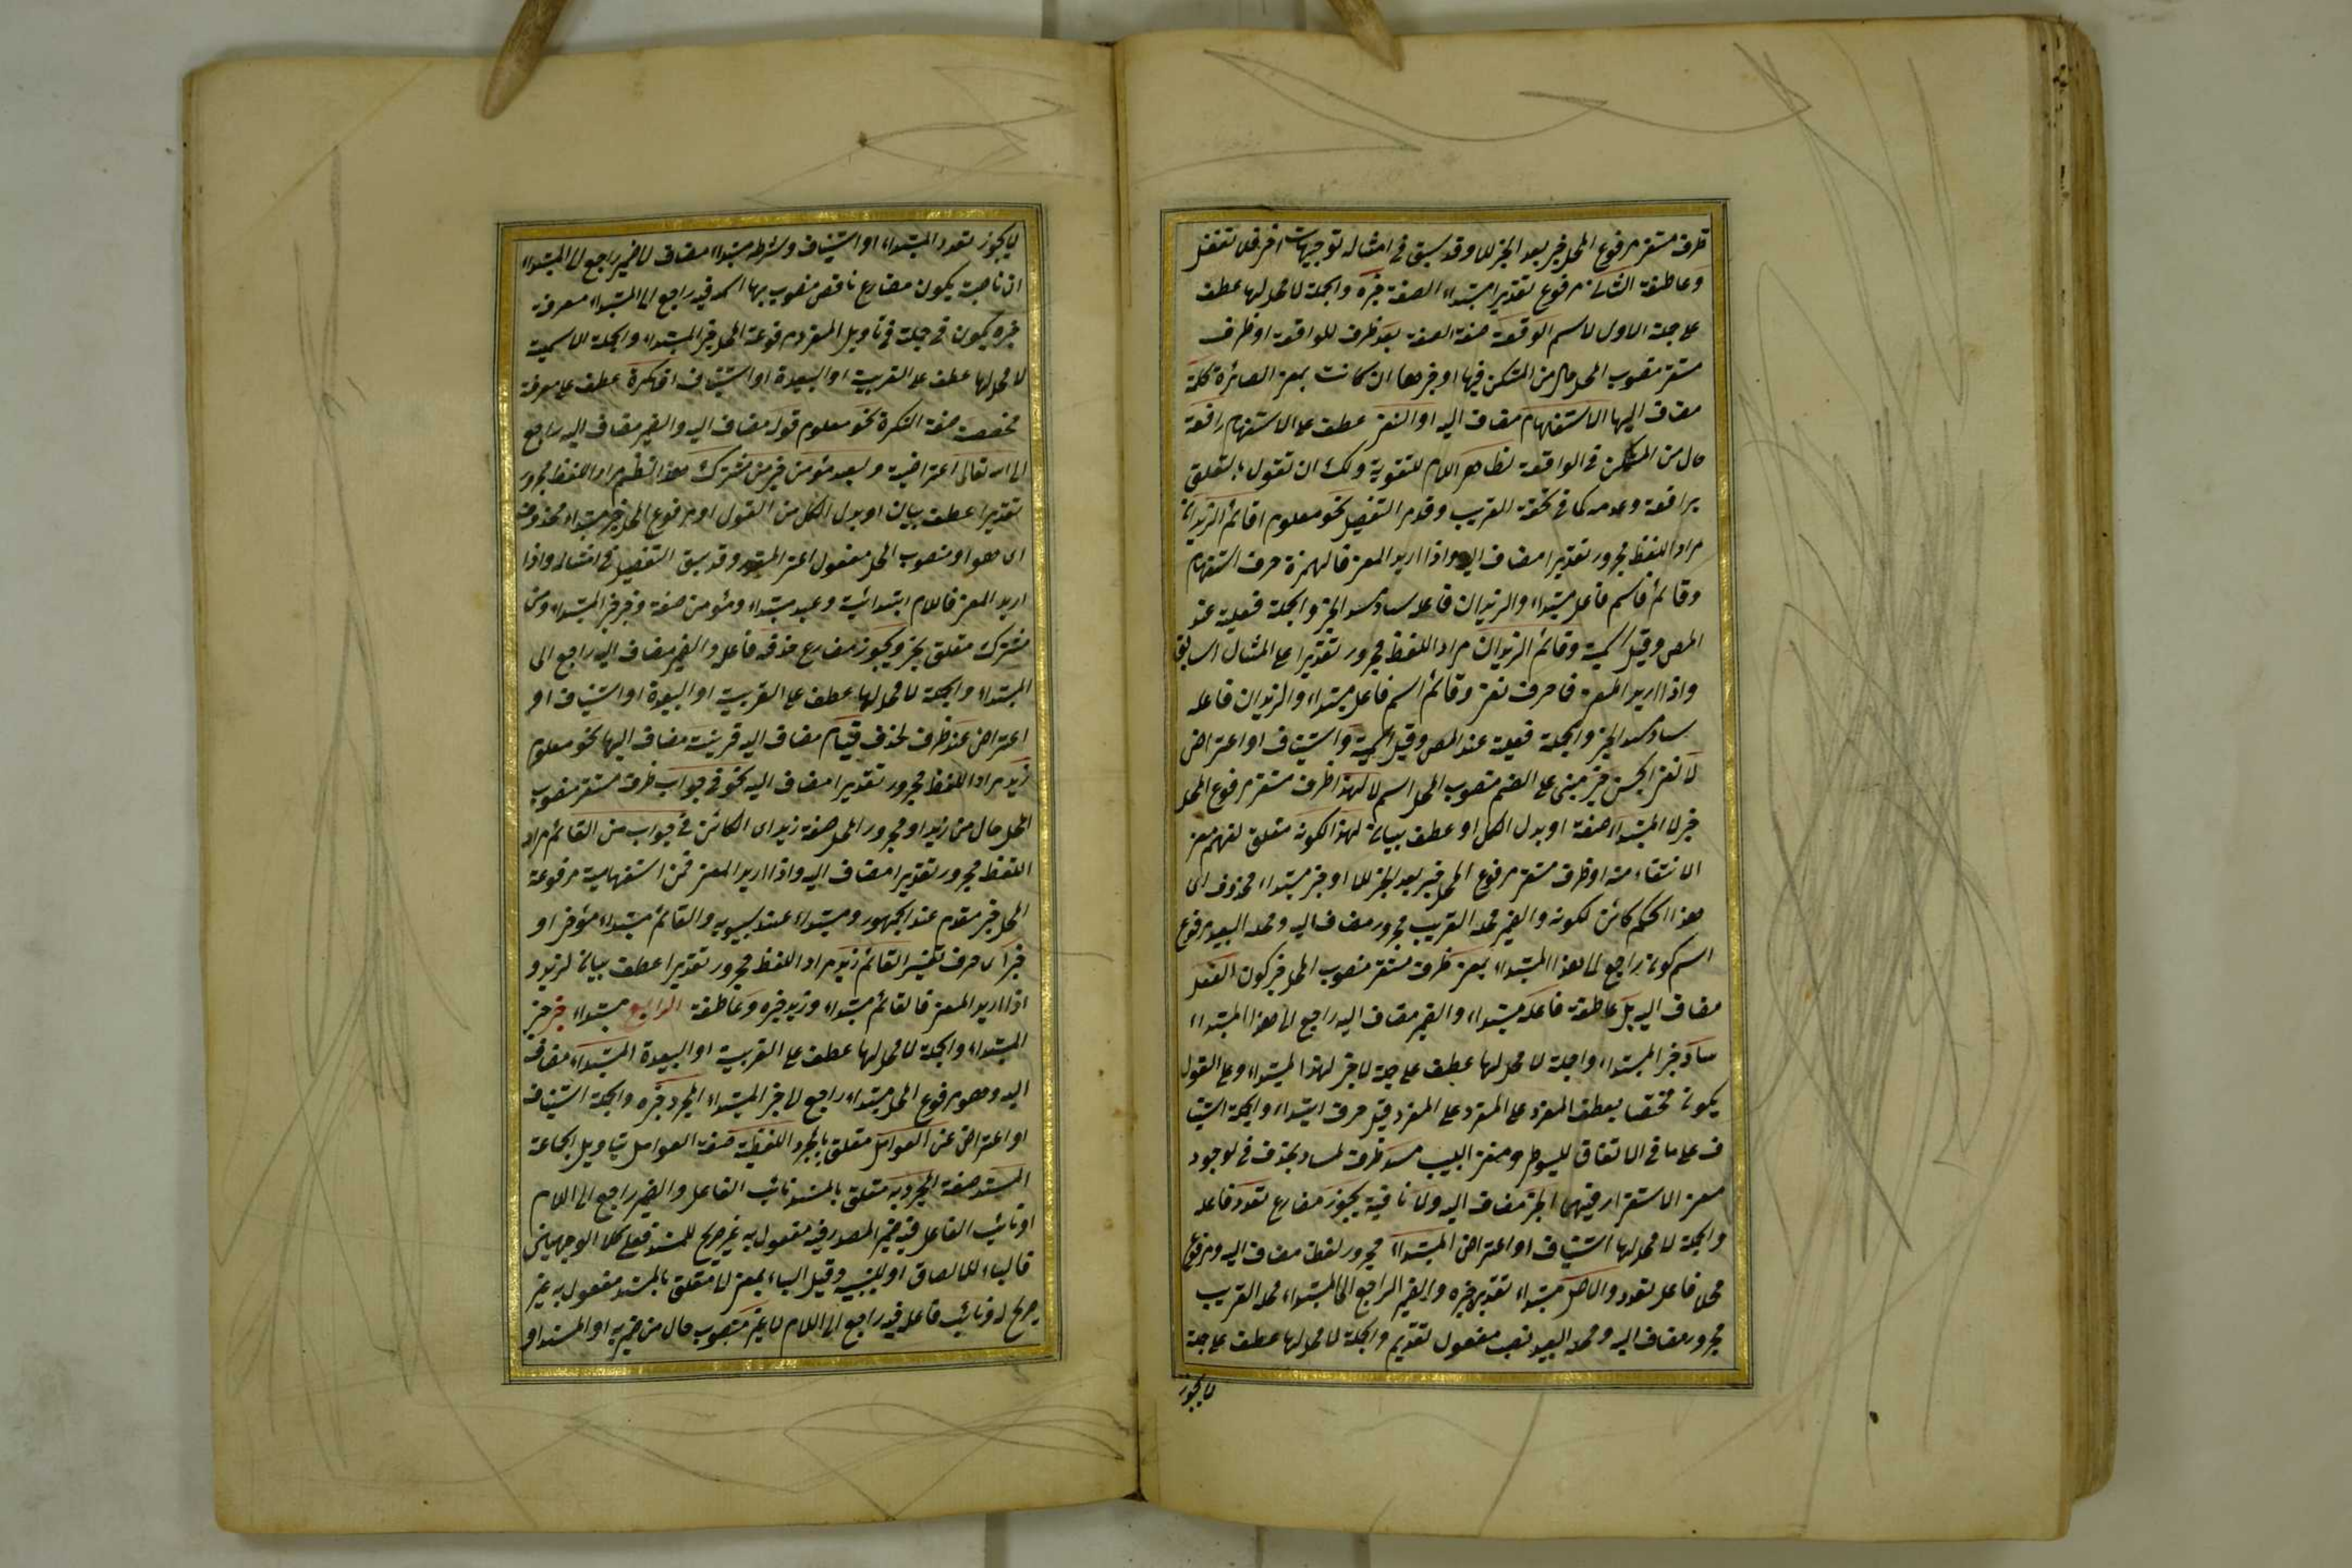 ظرف مستقر مرفوع المحل خبر بعد الخبر للا وقد سبق فى امثاله توجيهات اخر فلا تغفل
وعاطفة الثانى مرفوع تقديرا مبتداء الصفة خبره والجملة لا محل لها عطف
على جملة الاول لاسم الواقعة صفة الصفة بعد ظرف للواقعة او ظرف
مستقر منصوب المحل حال من المستكن فيها او خبرها ان كانت بمعنى الصائرة كلمة
مضاف اليها الاستفهام مضاف اليه او النفى عطف على الاستفهام رافعة
حال من المستكن فى الواقعة لظاهر اللام للتقوية ولك ان تقول بالتعلق
برافعة وعدمه كما فى تحفة الغريب وقد مر التفصيل نحو معلوم اقائم الزيدان
مراد اللفظ مجرور تقديرا مضاف اليه واذا اريد المعنى فالهمزة حرف استفهام
وقائم اسم فاعل مبتداء والزيدان فاعله ساد مسد الخبر والجملة فعلية عند
المص وقيل اسمية وقائم الزيدان مراد اللفظ مجرور تقديرا على المثال السابق
واذا اريد المعنى فما حرف نفى وقائم اسم فاعل مبتداء والزيدان فاعله
ساد مسد الخبر والجملة فعلية عند المص وقيل اسمية واستيناف او اعتراض
لا لنفى الجنس خبر مبنى على الفتح منصوب المحل اسم لا لهذا ظرف مستقر مرفوع المحل
خبر لا المبتداء صفة او بدل الكل او عطف بيان لهذا لكونه متعلق لفهم معنى
الانتفاء منه او ظرف مستقر مرفوع المحل خبر بعد الخبر للا او خبر مبتداء محذوف اى
هذا الحكم كائن لكونه والضمير محله القريب مجرور مضاف اليه ومحله البعيد مرفوع
اسم كونه راجع الى هذا المبتداء بمعنى ظرف مستقر منصوب المحل خبر كون الفعل
مضاف اليه بل عاطفة فاعله مبتداء والضمير مضاف اليه راجع الى هذا المبتداء
ساد خبر المبتداء والجملة لا محل لها عطف على جملة لا خبر لهذا المبتداء وعلى القول
يكون مختصا بعطف المفرد على المفرد قيل حرف ابتداء والجملة استينا
ف على ما فى الاتقان للسيوطى ومغنى اللبيب مسد ظرف لساد بحذف فى لوجود
معنى الاستقرار فيهما الخبر مضاف اليه ولا نافية يجوز مضارع تعدد فاعله
والجملة لا محل لها استيناف او اعتراض المبتداء مجرور لفظا مضاف اليه ومرفوع
محلا فاعل تعدد والاصل مبتداء تقديم خبره والضمير الراجع الى المبتداء محله القريب
مجرور مضاف اليه ومحله البعيد نصب مفعول تقديم والجملة لا محل لها عطف على جملة
لا يجوز
لا يجوز تعدد المبتداء او استيناف وشرطه مبتداء مضاف الى ضمير راجع الى المبتداء
ان ناصبة يكون مضارع ناقص منصوب بها اسمه فيه راجع الى المبتداء معرفة
خبره ويكون فى جملته فى تاويل المفرد مرفوعة المحل خبر المبتداء والجملة الاسمية
لا محل لها عطف على القريبة او البعيدة او استيناف او نكرة عطف على معرفة
مخصصة صفة النكرة نحو معلوم قوله مضاف اليه والضمير مضاف اليه راجع
الى الله تعالى اعتراضية ولعبد مؤمن خير من مشرك هذا النظم مراد اللفظ مجرور
تقديرا عطف بيان او بدل الكل من القول او مرفوع المحل خبر مبتداء محذوف
اى هو او منصوب المحل مفعول اعنى المقدر وقد سبق التفصيل فى امثاله واذا
اريد المعنى فاللام ابتدائية وعبد مبتداء ومؤمن صفة وخير خبر المبتداء ومن
مشرك متعلق بخير ويجوز مضارع حذفه فاعله والضمير مضاف اليه راجع الى
المبتداء والجملة لا محل لها عطف على القريبة او البعيدة او استيناف او
اعتراض عند ظرف لحذف قيام مضاف اليه قرينة مضاف اليها نحو معلوم
زيد مراد اللفظ مجرور تقديرا مضاف اليه نحو فى جواب ظرف مستقر منصوب
المحل حال من زيد او مجرور المحل صفة زيد اى الكائن فى جواب من القائم مراد
اللفظ مجرور تقديرا مضاف اليه واذا اريد المعنى فمن استفهامية مرفوعة
المحل خبر مقدم عند الجمهور ومبتداء عند سيبويه والقائم مبتداء مؤخر او
خبر اى حرف تفسير القائم زيد مراد اللفظ مجرور تقديرا عطف بيان لزيد و
اذا اريد المعنى فالقائم مبتداء وزيد خبره وعاطفة الرابع مبتداء خبر خبر
المبتداء والجملة لا محل لها عطف على القريبة او البعيدة المبتداء مضاف
اليه وهو مرفوع المحل مبتداء راجع الى خبر المبتداء المجرد خبره والجملة استيناف
او اعتراض عن العوامل متعلق بالمجرد اللفظية صفة العوامل بتاويل الجماعة
المسند صفة المجرد به متعلق بالمسند نائب الفاعل والضمير راجع الى اللام
او نائب الفاعل فيه ضمير المصدر فيه مفعول به غير صريح للمسند فعلى كلا الوجهين
فالباء للالصاق او للسببية وقيل الباء بمعنى الى متعلق بالمسند مفعول به غير
صريح له ونائب فاعله فيه راجع الى اللام لا بغير منصوب حال من ضمير به او المسند او